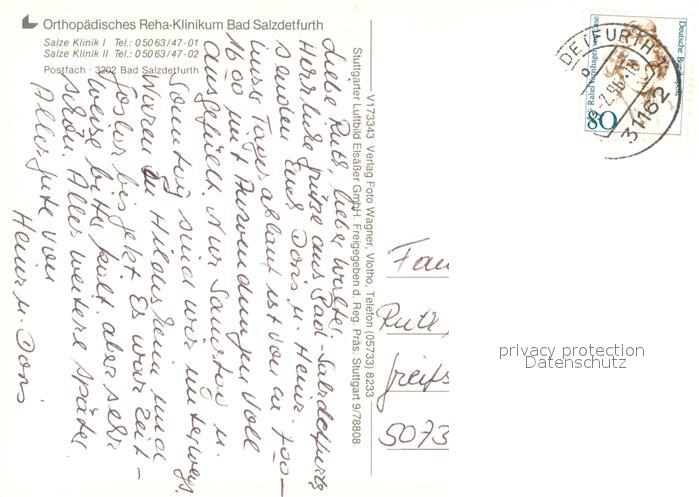 Orthopädisches Reha-Klinikum Bad Salzdetfurth
Salze Klinik I Tel.: 05063/47-01
Salze Klinik II Tel.: 05063/47-02
Postfach · 3202 Bad Salzdetfurth
Liebe Ruth, lieber Walter,
Herzliche Grüße aus Bad-Salzdetfurth
senden Euch Doris u. Heinr.
Unser Tagesablauf ist von ca 700–
1600 mit Anwendungen voll
ausgefüllt. Nur Samstag u.
Sonntag sind wir unterwegs.
Waren in Hildesheim und
Goslar bis jetzt. Es war zeit-
weise bitterkalt aber sehr
schön. Alles weitere später.
Alles gute von
Heinr u. Doris
V173343 Verlag Foto Wagner, Vlotho, Telefon (05733) 8233
Stuttgarter Luftbild Elsäßer GmbH. Freigegeben d. Reg. Präs. Stuttgart 9/78808
Deutsche Bundespost
Rahel Varnhagen von Ense
80
DETFURTH
31162
Fam
Ruth
Greifs
5073
privacy protection
Datenschutz